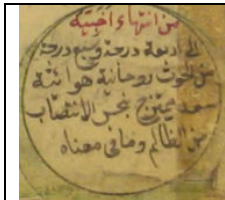 من انتهاء اخبية
الى اربعة درجة وسبع درجة
من الحوت روحانية هوائية
سعد ممتزج نحس الانتصاب
من الظالم وما فى معناه